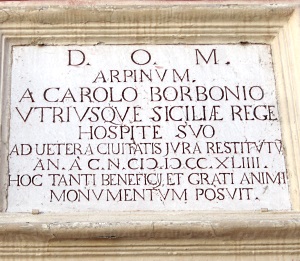 D. O. M.
ARPINVM.
A CAROLO BORBONIO
VTRIVSQVE SICILIÆ REGE
HOSPITE SVO
AD UETERA CIUITATIS JVRA RESTITVTV
AN. A C. N. CIƆ. IƆ CC. XLIIII.
HOC TANTI BENEFICIJ, ET GRATI ANIMI
MONVMENTVM POSVIT.